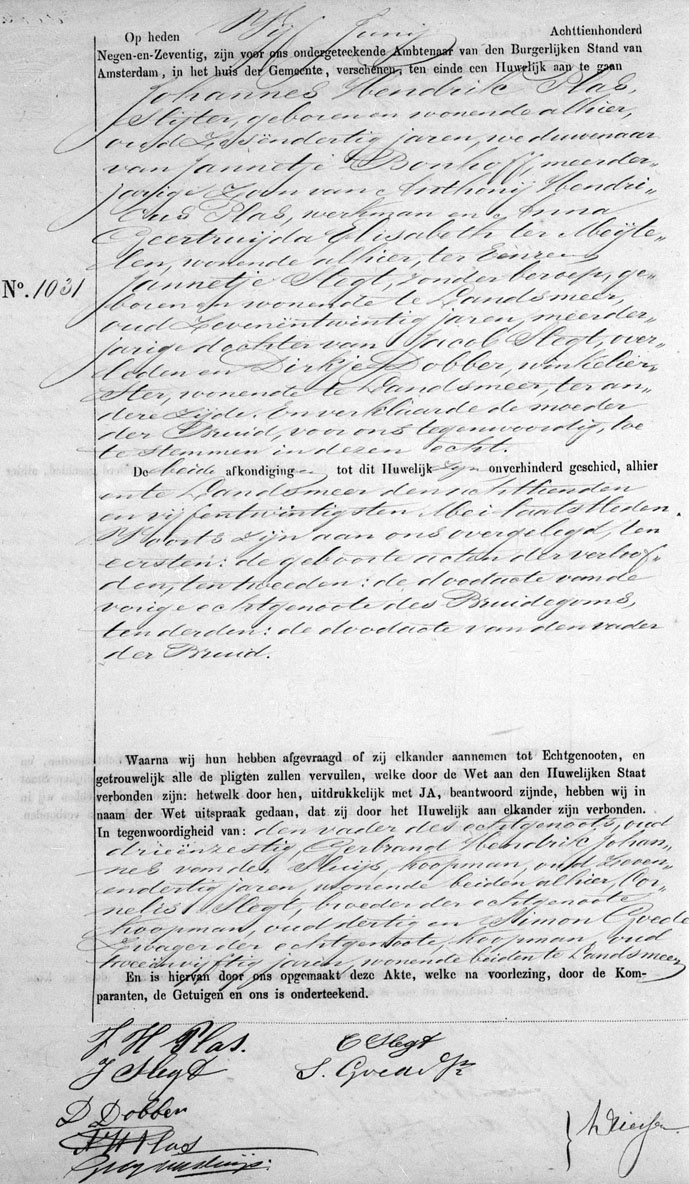 Op heden Vijf Junij Achttienhonderd
Negen-en-Zeventig, zijn voor ons ondergeteekende Ambtenaar van den Burgerlijken Stand van
Amsterdam, in het huis der Gemeente, verschenen, ten einde een Huwelijk aan te gaan
Johannes Hendrik Plas,
Slijter, geboren en wonende alhier,
oud Zesëndertig jaren, weduwenaar
van Jannetje Bonhoff, meerder-
jarige Zoon van Anthonij Hendri-
cus Plas, werkman en Anna
Geertruijda Elisabeth ter Meÿte-
len, wonende alhier, ter Eenre en
No. 1031
Jannetje Slegt, zonder beroep, ge-
boren en wonende te Landsmeer,
oud Zevenëntwintig jaren, meerder-
jarige dochter van Jacob Slegt, over-
leden en Dirkje Dobber, winkelier-
ster, wonende te Landsmeer, ter an-
dere zijde. En verklaarde de moeder
der Bruid, voor ons tegenwoordig, toe
te stemmen in dezen echt.
De beide afkondigingen tot dit Huwelijk zijn onverhinderd geschied, alhier
en te Landsmeer den achttienden
en vijfentwintigsten Mei laatstleden.
Voorts zijn aan ons overgelegd, ten
eersten: de geboorteacten der verloof-
den, ten tweeden: de doodacte van de
vorige echtgenoote des Bruidegoms,
ten derden: de doodacte van den vader
der Bruid.
Waarna wij hun hebben afgevraagd of zij elkander aannemen tot Echtgenooten, en
getrouwelijk alle de pligten zullen vervullen, welke door de Wet aan den Huwelijken Staat
verbonden zijn: hetwelk door hen, uitdrukkelijk met JA, beantwoord zijnde, hebben wij in
naam der Wet uitspraak gedaan, dat zij door het Huwelijk aan elkander zijn verbonden.
In tegenwoordigheid van: den vader des echtgenoots, oud
drieënzestig, Gerbrand Hendrik Johan-
nes van der Sluijs, koopman, oud Zeven-
endertig jaren, wonende beiden alhier, Cor-
nelis Slegt, broeder der echtgenoote
koopman, oud dertig en Simon Goede
Zwager der echtgenoote, koopman, oud
tweeënvijftig jaren, wonende beiden te Landsmeer
En is hiervan door ons opgemaakt deze Akte, welke na voorlezing, door de Kom-
paranten, de Getuigen en ons is onderteekend.
J H Plas. C Slegt
J Slegt S. Goede Jz
D Dobber
A H Plas